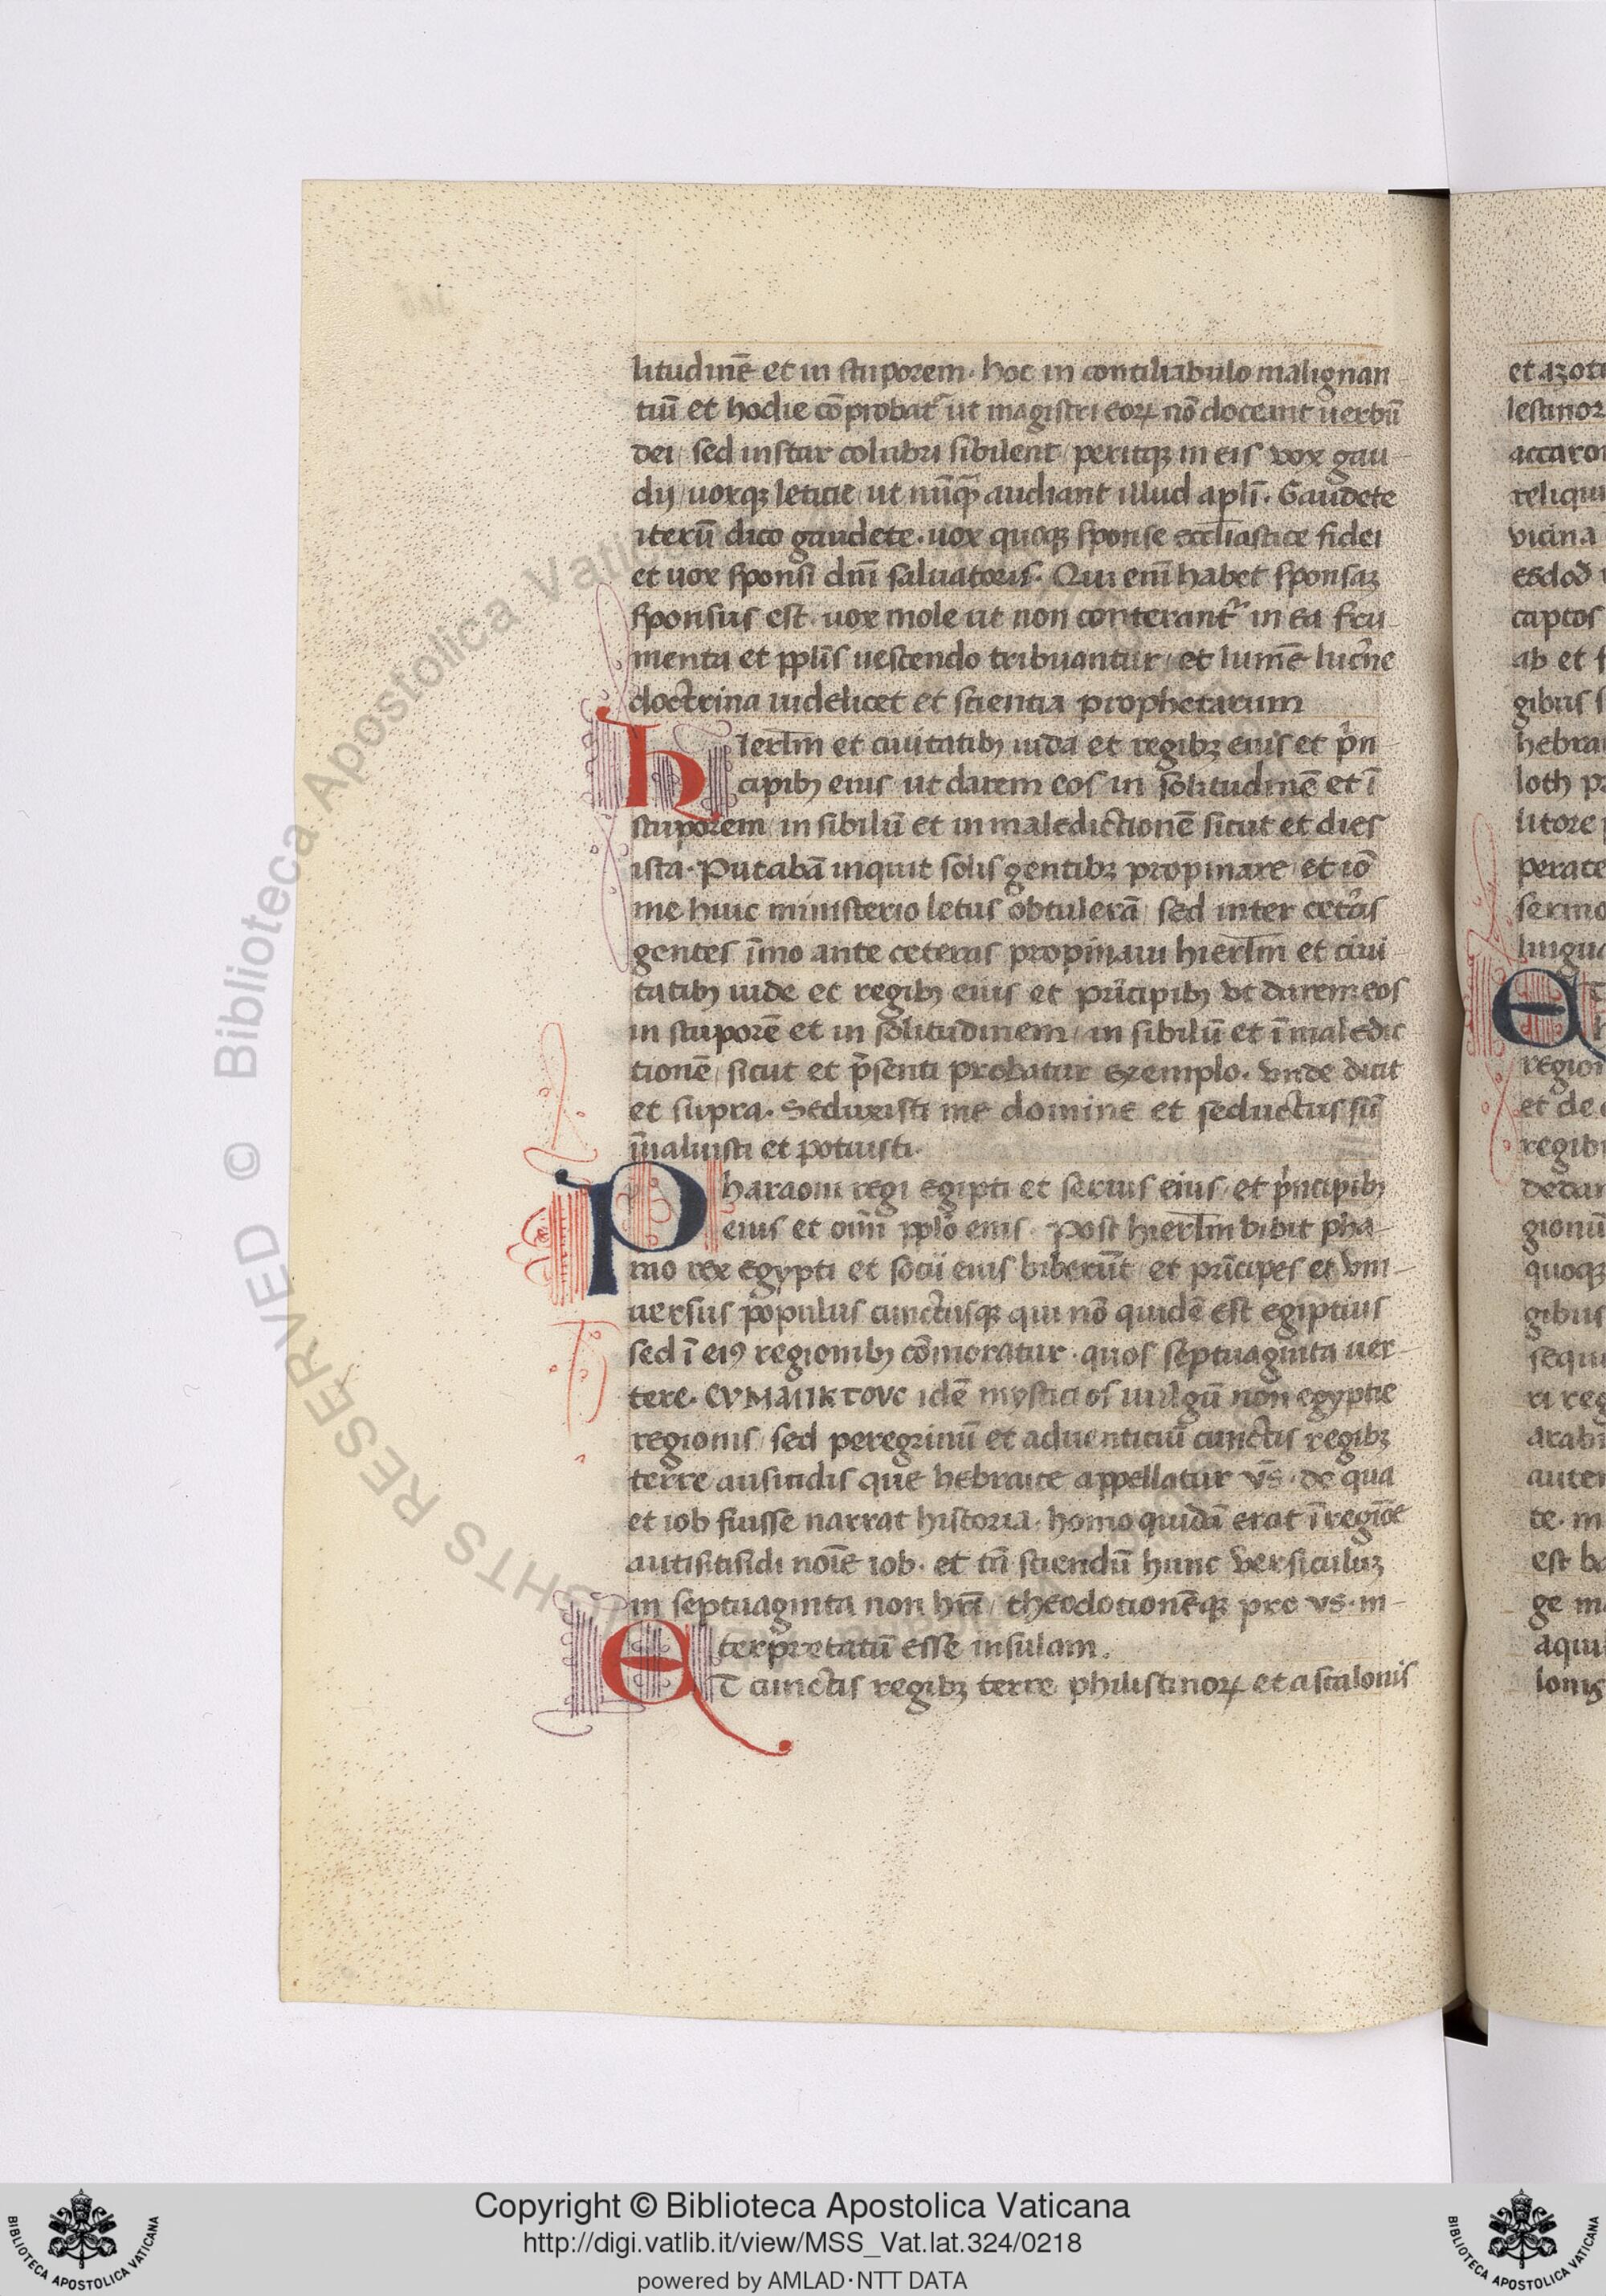 litudinē et in stuporem. hoc in conciliabulo malignan
tiū et hodie cōprobat᷑ ut magistri eoꝝ nō doceant uerbū
dei, sed instar colubri sibilent, peritqꝫ in eis vox gau
dij, uoxqꝫ leticie, ut nūqᷓ audiant illud apl̄i. Gaudete
iterū dico gaudete. uox quoqꝫ sponse eccl̄iastice fidei
et uox sponsi dn̄i saluatoris. Qui eni᷒ habet sponsaꝫ
sponsus est. uox mole ut non conterant᷑ in ea fru
menta et ppl̄is uescendo tribuantur, et lumē luc̓ne
doctrina uidelicet et scientia prophetarum
Hierl̄m et ciuitatibꝫ iuda et regibꝫ eius et p̓n
cipibꝫ eius ut darem eos in solitudinē et ī
stuporem, in sibilū et in maledictionē sicut et dies
ista. Putabā inquit solis gentibꝫ propinare, et iō
me huic ministerio letus obtulerā, sed inter cet̓as
gentes īmo ante ceteras propinaui hierl̄m et ciui
tatibꝫ iude et regibꝫ eius et prīcipibꝫ vt darem eos
in stuporē et in solitudinem, in sibilū et ī maledic
tionē, sicut et p̄senti probatur exemplo. vnde dicit
et supra. Seduxisti me domine et seductus sū
īualuisti et potuisti.
Pharaoni regi egipti et seruis eius, et p̓ncipibꝫ
eius et oīm pplō eius. Post hierl̄m bibit pha
rao rex egypti et socii eius biberūt, et prīcipes et vni
uersus populus cunctusqꝫ qui nō quidē est egiptius
sed ī eiꝰ regionibꝫ cōmoratur. quos septuaginta uer
tere. CVMMIKTOVC idē mysticios uulgū non egyptie
regionis, sed peregrinū et aduenticiū cunctis regibꝫ
terre ausitidis que hebraice appellatur vs̄. de qua
et iob fuisse narrat historia. homo quidā erat ī regiōe
autisitisidi noīe iob. et tn̄ sciendū hunc versiculuꝫ
in septuaginta non hr̄i, theodotionēqꝫ pro vs. in
terpretatū esse insulam.
ET cunctis regibꝫ terre philistinoꝝ et ascalonis
et azot
lestinoꝝ
accaron
reliqui
vicina
esdod
captos
ab et
gibus
hebra
loth
litore
perate
sermo
lingua
Et
h
region
et de
regib
gionū
quoqꝫ
gibus
sequi
ri reg
arab
autem
te. m
est
ge m
aqui
lonis
© Biblioteca Apostolica Vaticana
RIGHTS RESERVED
Copyright © Biblioteca Apostolica Vaticana
http://digi.vatlib.it/view/MSS_Vat.lat.324/0218
powered by AMLAD·NTT DATA
BIBLIOTECA APOSTOLICA VATICANA
BIBLIOTECA APOSTOLICA VATICANA